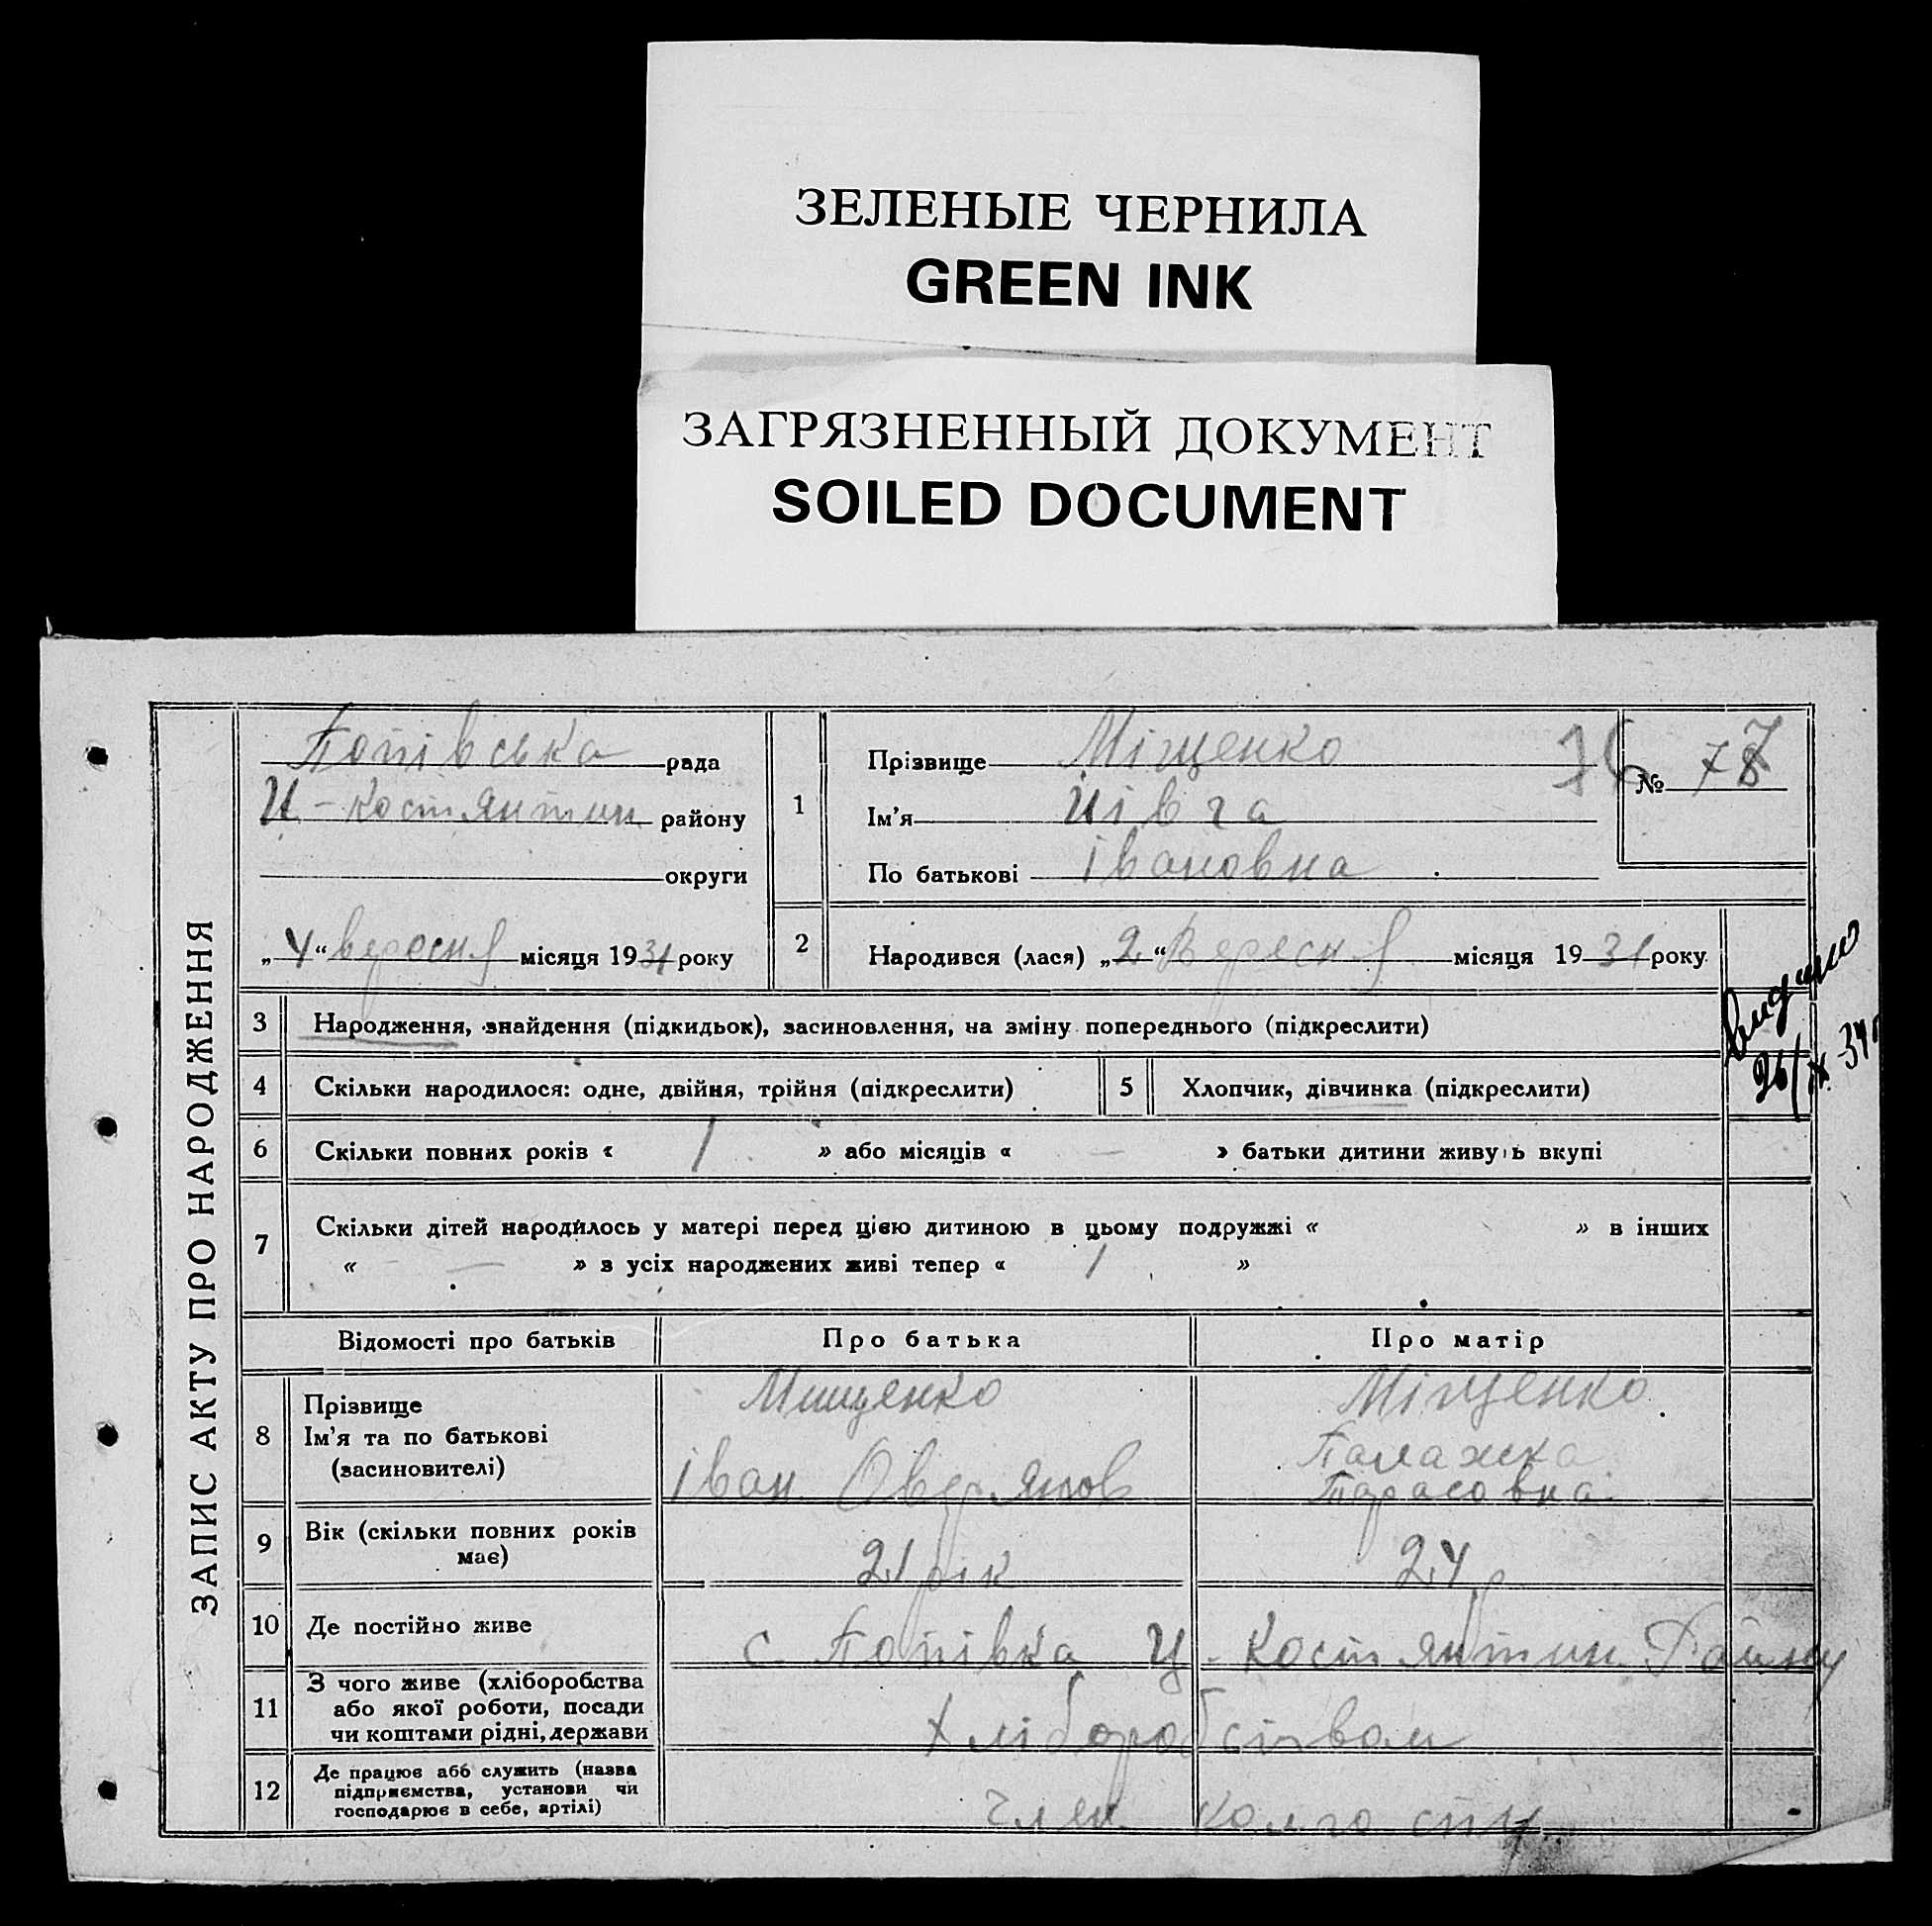 ЗЕЛЕНЫЕ ЧЕРНИЛА
GREEN INK
ЗАГРЯЗНЕННЫЙ ДОКУМЕНТ
SOILED DOCUMENT
ЗАПИС АКТУ ПРО НАРОДЖЕННЯ
Попівська рада
Ц-Костянтин району
округи
„4“ вересня місяця 1931 року
1
Прізвище Міщенко
Ім'я Йівга
По батькові Івановна
№ 78
2 Народився (лася) „2“ Вересня місяця 1931 року
Видано
26/ІХ 34 г
3 Народження, знайдення (підкидьок), засиновлення, на зміну попереднього (підкреслити)
4 Скільки народилося: одне, двійня, трійня (підкреслити) 5 Хлопчик, дівчинка (підкреслити)
6 Скільки повних років « 1 » або місяців « — » батьки дитини живуть вкупі
7 Скільки дітей народилось у матері перед цією дитиною в цьому подружжі « » в інших
« — » з усіх народжених живі тепер « 1 »
Відомості про батьків Про батька Про матір
8 Прізвище
Ім'я та по батькові
(засиновителі)
Мищенко
Іван Овер'янов
Міщенко
Палажка
Тарасовна
9 Вік (скільки повних років
має)
21 рік 24 р
10 Де постійно живе с. Попівка Ц-Костянтин Району
11 З чого живе (хліборобства
або якої роботи, посади
чи коштами рідні, держави
Хліборобством
12 Де працює або служить (назва
підприємства, установи чи
господарює в себе, артілі)
Член колгоспу